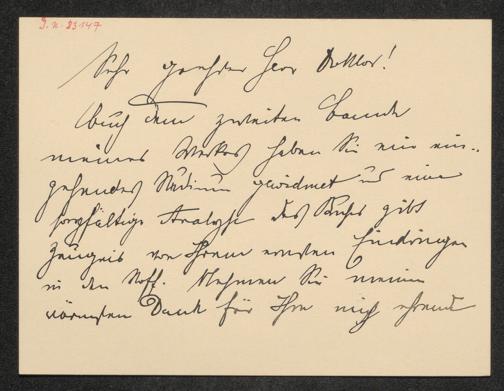 J. N. 83147
Sehr geehrter Herr Doktor!
Auch dem zweiten Bande
meines Werkes haben Sie ein ein-
gehendes Studium gewidmet und eine
sorgfältige Analyse des Buches gibt
Zeugnis von Ihrem ernsten Eindringen
in den Stoff. Nehmen Sie meinen
wärmsten Dank für Ihre mich ehrende